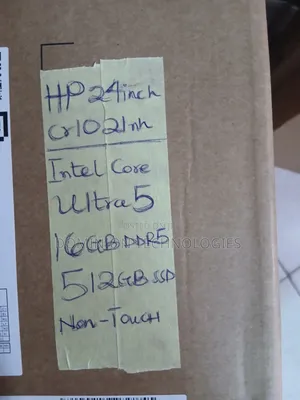 HP 24inch
Cr1021nh
Intel Core
Ultra 5
16GB DDR5
512GB SSD
Non-Touch